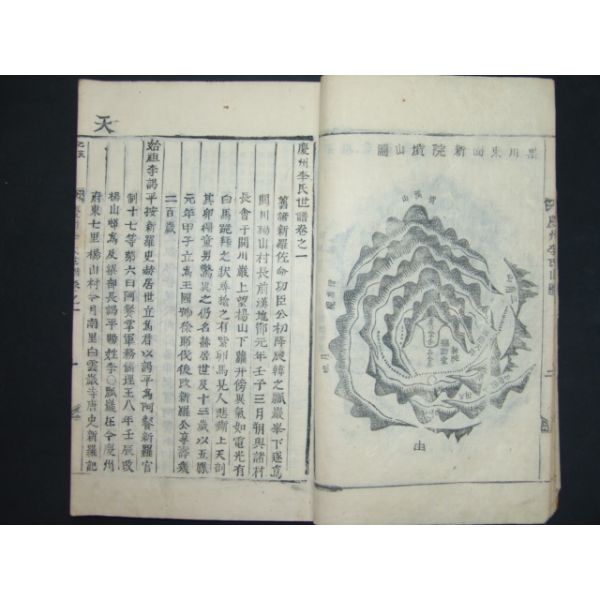 果川東面新院墳山圖
慶州李氏山圖
二
山
天
慶州李氏世譜卷之一
舊譜新羅佐命功臣公初降辰韓之瓢巖峯下遂爲
閼川楊山村長前漢地節元年壬子三月朔與諸村
長會于閼川巖上望楊山下蘿井傍異氣如電光有
白馬跪拜之狀尋撿之有紫卵馬見人悲嘶上天剖
其卵得童男驚異之仍名赫居世及十三歲以五鳳
元年甲子立爲王國號徐耶伐後改新羅公享壽幾
二百歲
始祖李謁平按新羅史赫居世立爲君以謁平爲阿餐新羅官
制十七等第六曰阿餐掌軍務儒理王八年壬辰改
楊山部爲及梁部長謁平賜姓李瓢巖在今慶州
府東七里楊山村今月南里白雲巖寺唐史新羅記